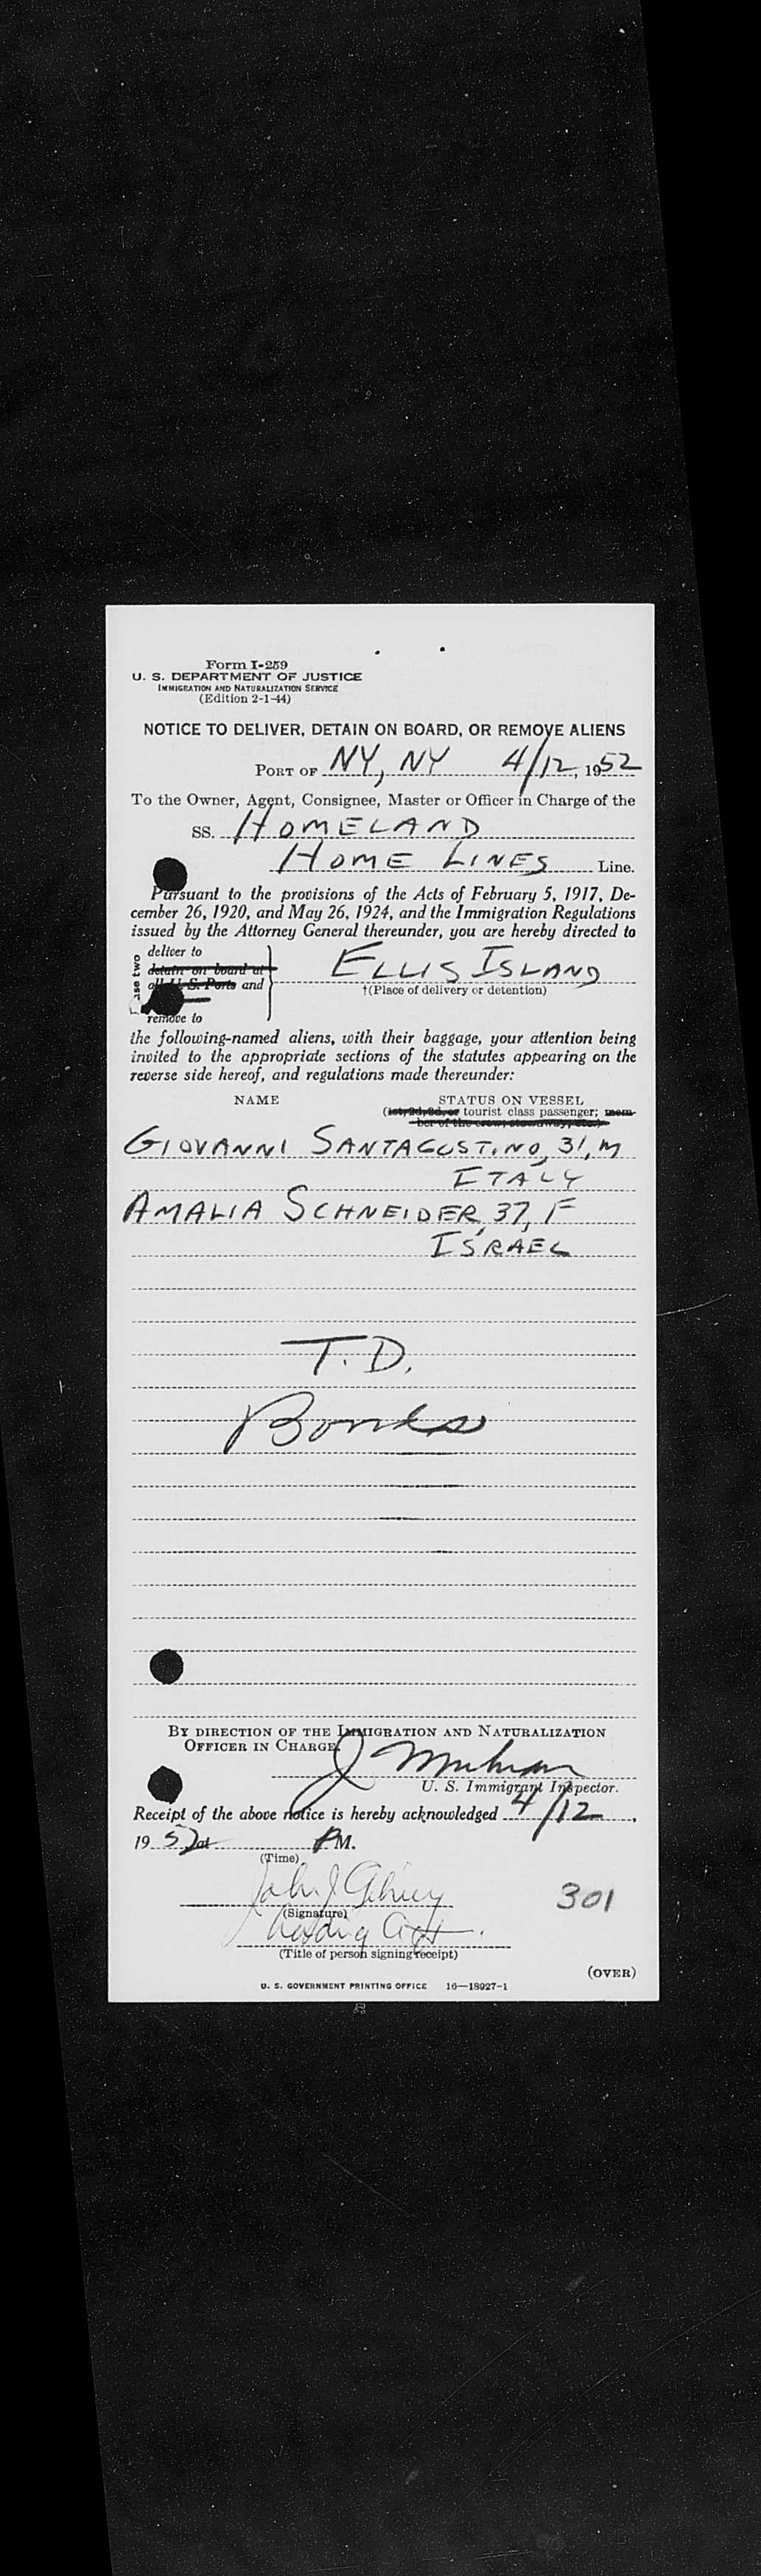 Form I-259
U. S. DEPARTMENT OF JUSTICE
IMMIGRATION AND NATURALIZATION SERVICE
(Edition 2-1-44)
NOTICE TO DELIVER, DETAIN ON BOARD, OR REMOVE ALIENS
PORT OF NY, NY 4/12, 1952
To the Owner, Agent, Consignee, Master or Officer in Charge of the
SS. HOMELAND
HOME LINES Line.
Pursuant to the provisions of the Acts of February 5, 1917, De-
cember 26, 1920, and May 26, 1924, and the Immigration Regulations
issued by the Attorney General thereunder, you are hereby directed to
deliver to
detain on board at ELLIS ISLAND
all U. S. Ports and †(Place of delivery or detention)
remove to
the following-named aliens, with their baggage, your attention being
invited to the appropriate sections of the statutes appearing on the
reverse side hereof, and regulations made thereunder:
NAME STATUS ON VESSEL
(1st, 2d, 3d, or tourist class passenger; mem-
ber of the crew; stowaway, etc.)
GIOVANNI SANTAGOSTINO, 31, M
ITALY
AMALIA SCHNEIDER, 37, F
ISRAEL
T.D.
Bonds
BY DIRECTION OF THE IMMIGRATION AND NATURALIZATION
OFFICER IN CHARGE
J
U. S. Immigrant Inspector.
Receipt of the above notice is hereby acknowledged 4/12,
1952 at PM.
(Time)
John J
(Signature)
(Title of person signing receipt)
301
(OVER)
U. S. GOVERNMENT PRINTING OFFICE 16—18927-1